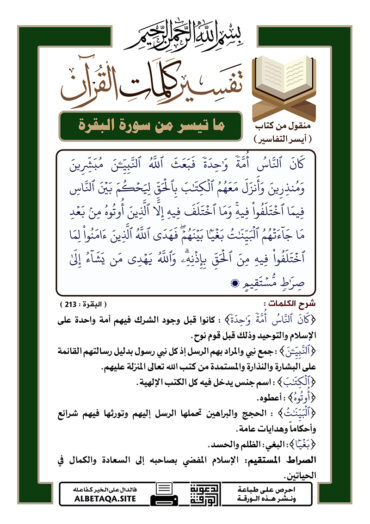 بِسْمِ اللَّهِ الرَّحْمَٰنِ الرَّحِيمِ
تفسير كلمات القرآن
ما تيسر من سورة البقرة
منقول من كتاب
( أيسر التفاسير )
كَانَ ٱلنَّاسُ أُمَّةٗ وَٰحِدَةٗ فَبَعَثَ ٱللَّهُ ٱلنَّبِيِّـۧنَ مُبَشِّرِينَ
وَمُنذِرِينَ وَأَنزَلَ مَعَهُمُ ٱلۡكِتَٰبَ بِٱلۡحَقِّ لِيَحۡكُمَ بَيۡنَ ٱلنَّاسِ
فِيمَا ٱخۡتَلَفُواْ فِيهِۚ وَمَا ٱخۡتَلَفَ فِيهِ إِلَّا ٱلَّذِينَ أُوتُوهُ مِنۢ بَعۡدِ
مَا جَآءَتۡهُمُ ٱلۡبَيِّنَٰتُ بَغۡيَۢا بَيۡنَهُمۡۖ فَهَدَى ٱللَّهُ ٱلَّذِينَ ءَامَنُواْ لِمَا
ٱخۡتَلَفُواْ فِيهِ مِنَ ٱلۡحَقِّ بِإِذۡنِهِۦۗ وَٱللَّهُ يَهۡدِي مَن يَشَآءُ إِلَىٰ
صِرَٰطٖ مُّسۡتَقِيمٍ
شرح الكلمات :
( البقرة : 213 )
﴿كَانَ ٱلنَّاسُ أُمَّةٗ وَٰحِدَةٗ﴾ : كانوا قبل وجود الشرك فيهم أمة واحدة على
الإسلام والتوحيد وذلك قبل قوم نوح.
﴿ٱلنَّبِيِّـۧنَ﴾ : جمع نبي والمراد بهم الرسل إذ كل نبي رسول بدليل رسالتهم القائمة
على البشارة والنذارة والمستمدة من كتب الله تعالى المنزلة عليهم.
﴿ٱلۡكِتَٰبَ﴾ : اسم جنس يدخل فيه كل الكتب الإلهية.
﴿أُوتُوهُ﴾ : أعطوه.
﴿ٱلۡبَيِّنَٰتُ﴾ : الحجج والبراهين تحملها الرسل إليهم وتورثها فيهم شرائع
وأحكاماً وهدايات عامة.
﴿بَغۡيَۢا﴾ : البغي : الظلم والحسد.
الصراط المستقيم: الإسلام المفضي بصاحبه إلى السعادة والكمال في
الحياتين.
احرص على طباعة
ونشر هذه الورقة
الدعوية
الورقة
فالدال على الخير كفاعله
ALBETAQA.SITE